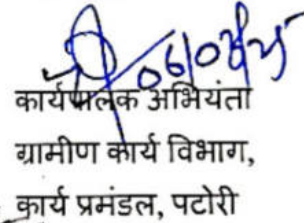 06/03/25
कार्यपालक अभियंता
ग्रामीण कार्य विभाग,
कार्य प्रमंडल, पटोरी